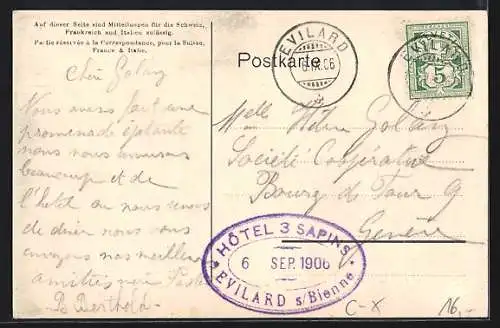 Auf dieser Seite sind Mitteilungen für die Schweiz,
Frankreich und Italien zulässig.
Partie réservée à la Correspondance, pour la Suisse,
France & Italie.
Postkarte
EVILARD
IX.06
EVILARD
5
Chéri Golay
Nous avons fait une
promenade épatante
nous nous amusons
beaucoup et de
l'hôtel ou nous venons
de diner nous vous
envoyons nos meilleurs
amitiés
B Berthold
Melle Golay
Société Coopérative
Bourg de Four 9
Genève
HÔTEL 3 SAPINS
6 SEP. 1906
EVILARD s/Bienne
C-X
16,-